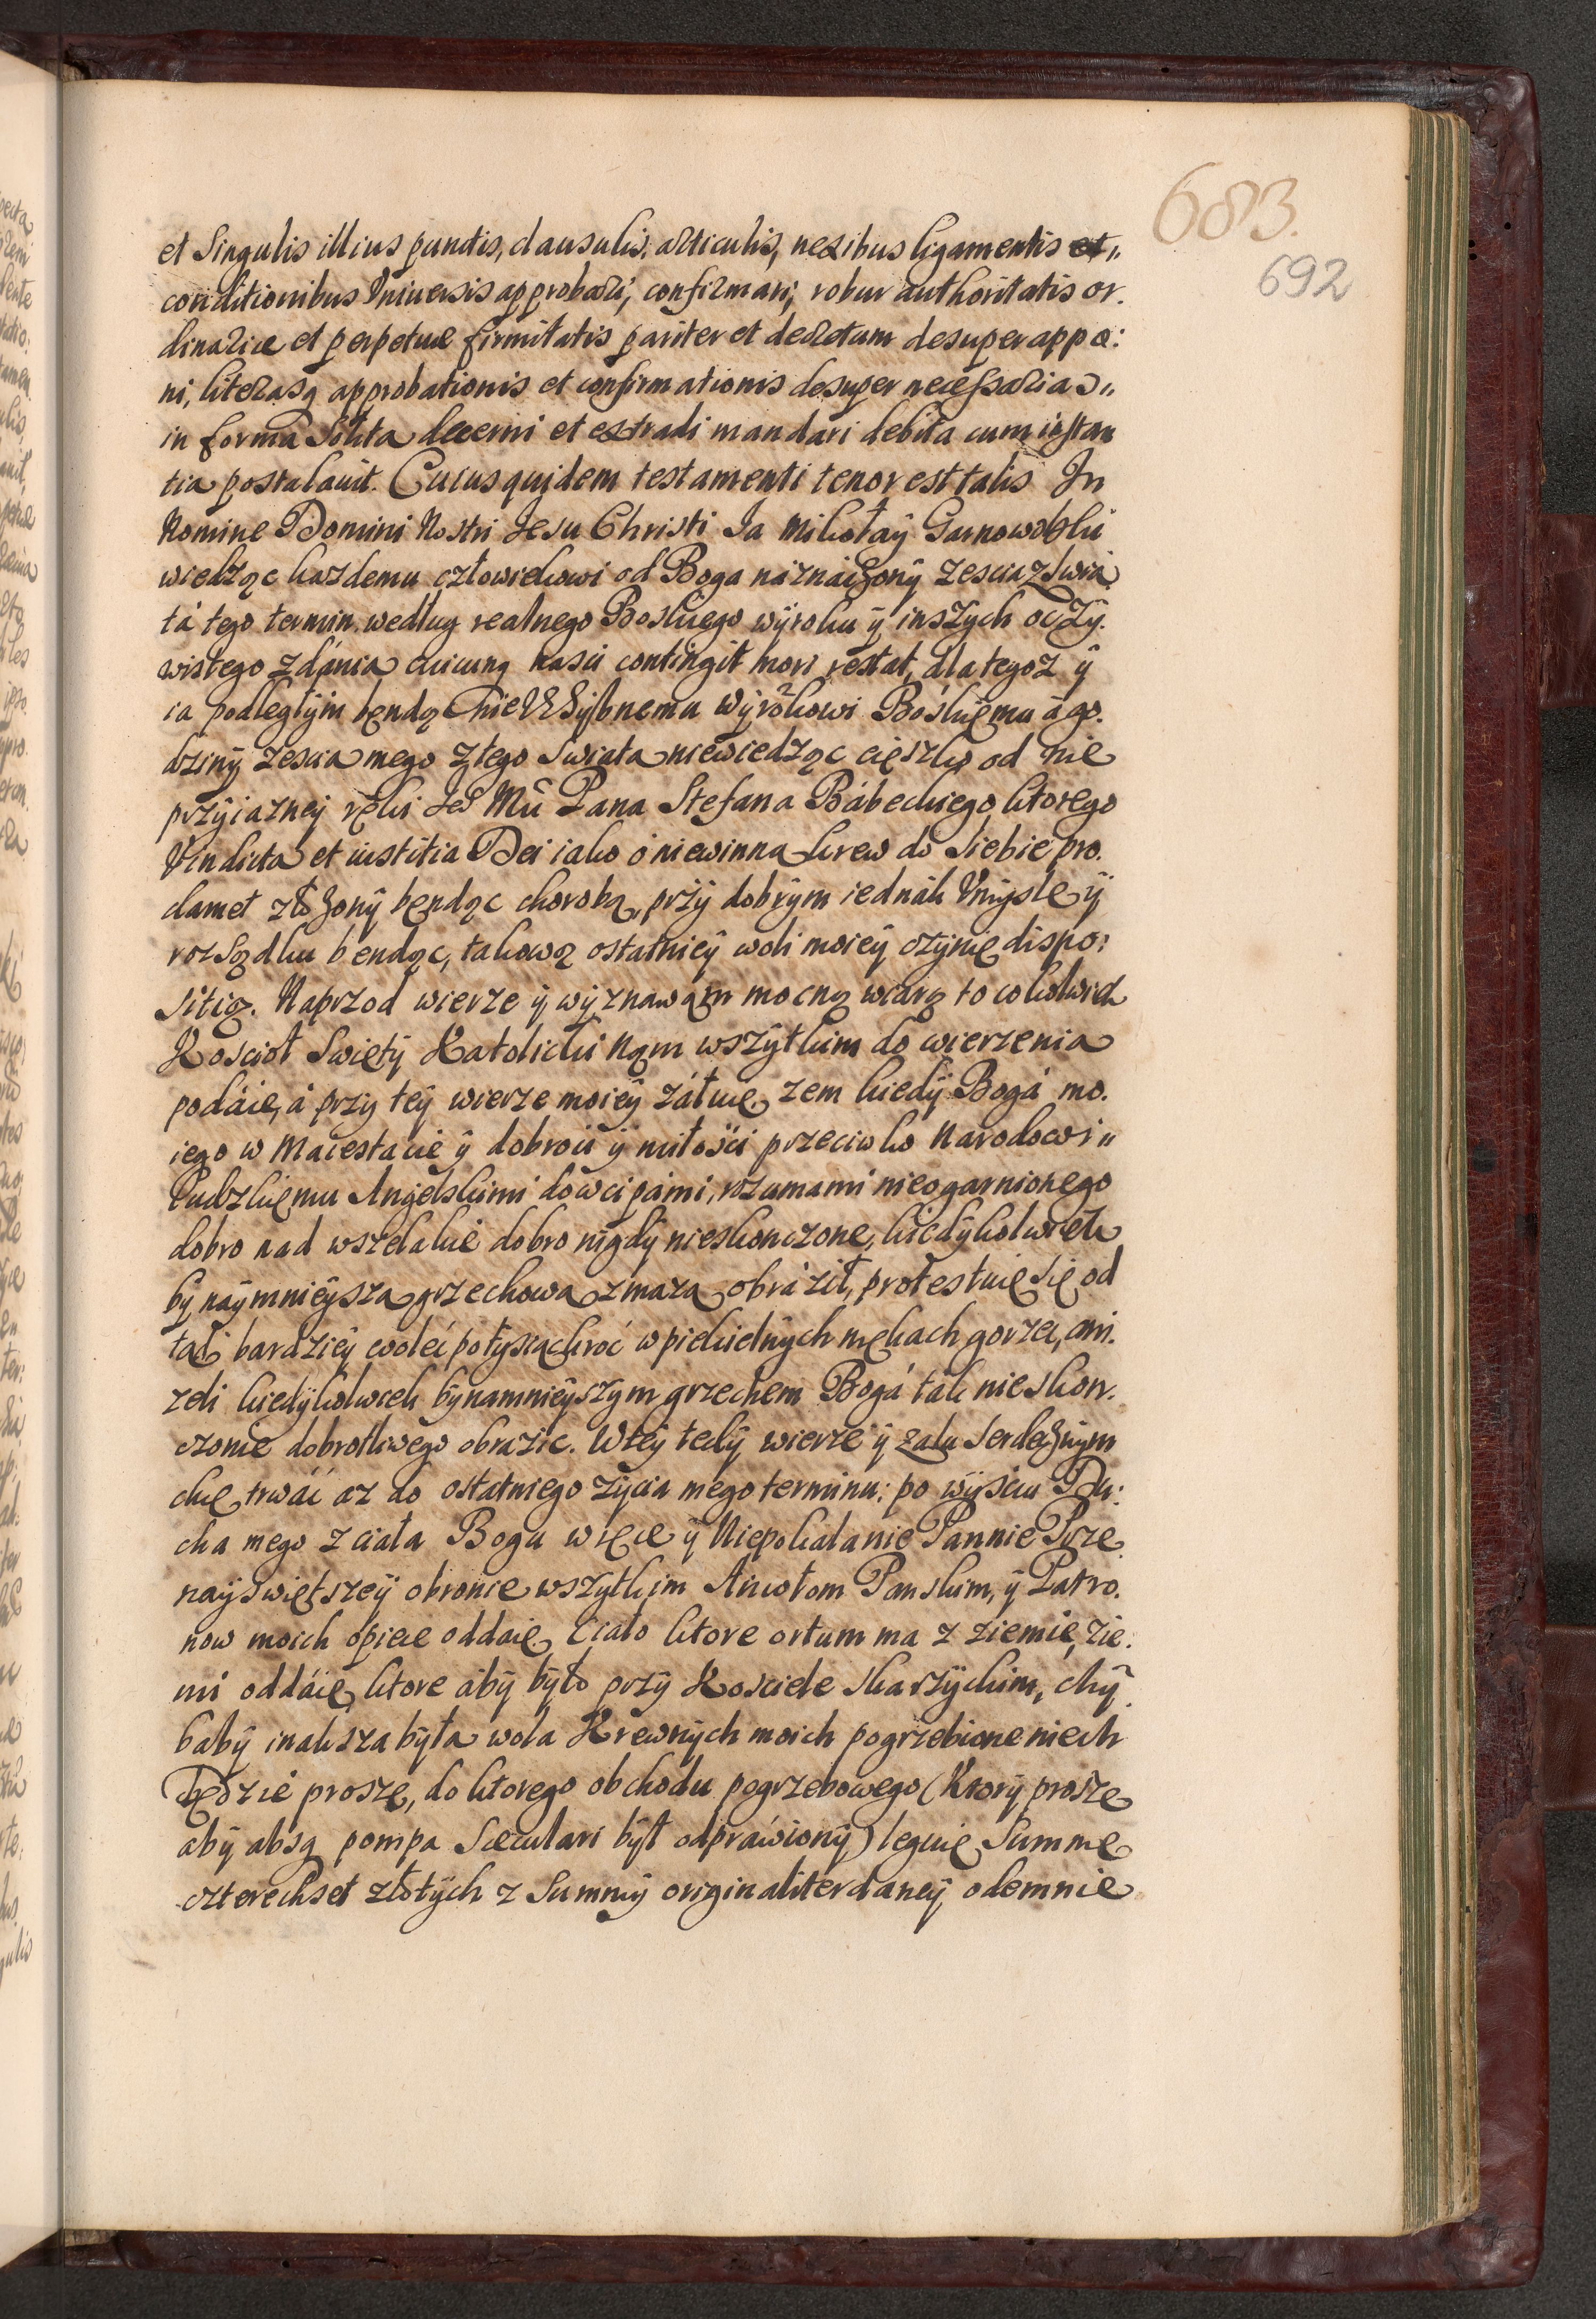 683.
692
et Singulis illius punctis, clausulis, articulis, nexibus ligamentis et„
conditionibus Vniuersis approbari, confirmari, robur authoritatis or.
dinariæ et perpetuæ firmitatis pariter et decretum desuper appo:
ni, literasq approbationis et confirmationis desuper necessarias„
in forma Solita decerni et extradi mandari debita cum instan
tia postulauit. Cuius quidem testamenti tenor est talis In
Nomine Domini Nostri Jesu Christi Ja Mikołaÿ Garnowskki
wiedząc kazdemu człowiekowi od Boga náznaczonÿ zescia z Swia
tá tego termin, wedlug realnego Boskiego wÿroku ÿ inszÿch oczÿ.
wistego zdánia cuicunq nasci contingit mori restat, dla tegoz ÿ
ia podległÿm bendą wÿrokowi Boskięmu á go.
dzinÿ zescia mego z tego Swiata niewiedząc cięszko od nie
przÿiaznej ręki Jeo Mci Pana Stefana Bábeckiego, ktorego
Vindicta et iustitia Dei iako o niewinna krew do Siebie pro.
clamet złozonÿ będąc chorobą, przÿ dobrÿm iednák Vmÿsle ÿ
rozsądku bendąc, takową ostatnieÿ woli moieÿ czÿnię dispo:
sitią. Naprzod wierze ÿ wÿznawam mocną wiarą to cokolwiek
Kosciół Swiętÿ Katolicki nąm wszÿtkim do wierzenia
podáie, á przÿ teÿ wierze moieÿ záłuię, zem kiedÿ Bogá mo.
iego w Maiestacie ÿ dobroci ÿ miłości przeciwko Narodowi„
Ludzkięmu Anÿelskimi dowcipámi, rozumami nieogarnionego
dobro nad wszelakie dobro nigdÿ nieskonczone, kiedÿkolwiek
bÿ naÿmnieÿsza grzechowa zmaza obráził, protestuię Się od
tąd bardzieÿ woleć potysiąckroć w piekielnÿch mękach gorzeć, ani.
zeli kiedÿkolwiek bÿnamnieÿszym grzechem Bogá ták nieskon.
czonie dobrotliwego obrazic. W teÿ tedÿ wierze ÿ zalu Serdecznÿm
chcę trwáć az do ostatniego zÿcia mego terminu; po wÿsciu Du:
cha mego z ciała Bogu w ręce ÿ Niepokalanie Pannie Prze
naÿswiętszeÿ obronie wszÿtkim Aniołom Panskim, ÿ Patro.
now moich opiece oddaię. Ciało ktore ortum ma z ziemie, zie:
mi oddáię, ktore ábÿ bÿło przÿ Kosciele Skarzÿckim, chÿ
babÿ inaksza bÿła wola Krewnÿch moich pogrzebione niech
będzie proszę, do ktorego obchodu pogrzebowego (ktorÿ proszę
abÿ absq pompa Sæculari bÿł odpráwionÿ) leguię Summę
czterechset złotÿch z Summÿ originaliter daneÿ odemnie